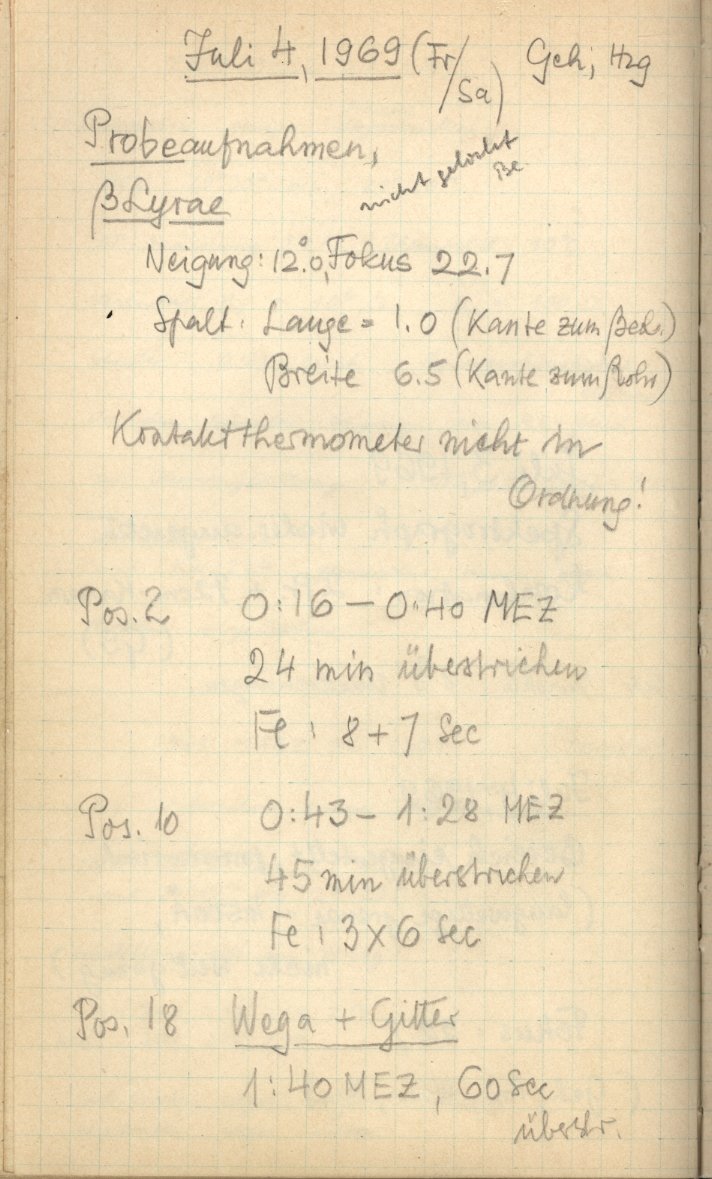 Juli 4, 1969 (Fr/Sa) Geh, Hzg
Probeaufnahmen,
nicht gelocht
Be
β Lyrae
Neigung: 12°.0, Fokus 22.7
Spalt: Länge = 1.0 (Kante zum Beob.)
Breite 6.5 (Kante zum Rohr)
Kontaktthermometer nicht in
Ordnung!
Pos. 2 0:16 – 0:40 MEZ
24 min überstrichen
Fe: 8 + 7 Sec
Pos. 10 0:43 – 1:28 MEZ
45 min überstrichen
Fe: 3 x 6 Sec
Pos. 18 Wega + Gitter
1:40 MEZ, 60 Sec
überstr.